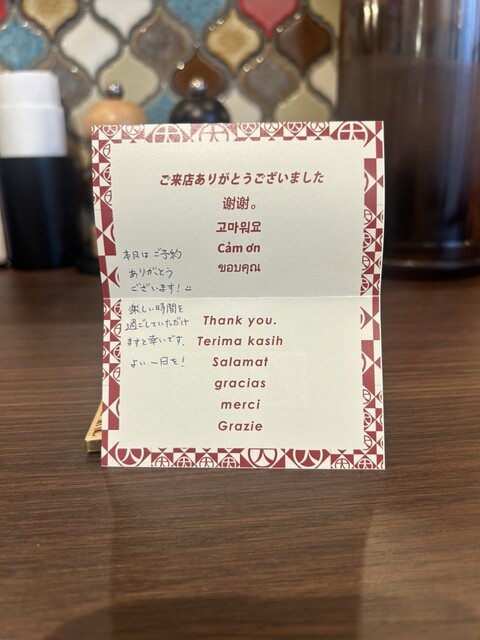 ご来店ありがとうございました
谢谢。
고마워요
Cảm ơn
ขอบคุณ
本日はご予約
ありがとう
ございます!
楽しい時間を
過ごしていただけ
ますと幸いです。
よい一日を!
Thank you.
Terima kasih
Salamat
gracias
merci
Grazie